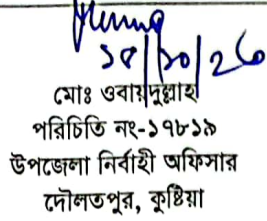 মোঃ ওবায়দুল্লাহ
পরিচিতি নং-১৭৮১৯
উপজেলা নির্বাহী অফিসার
দৌলতপুর, কুষ্টিয়া